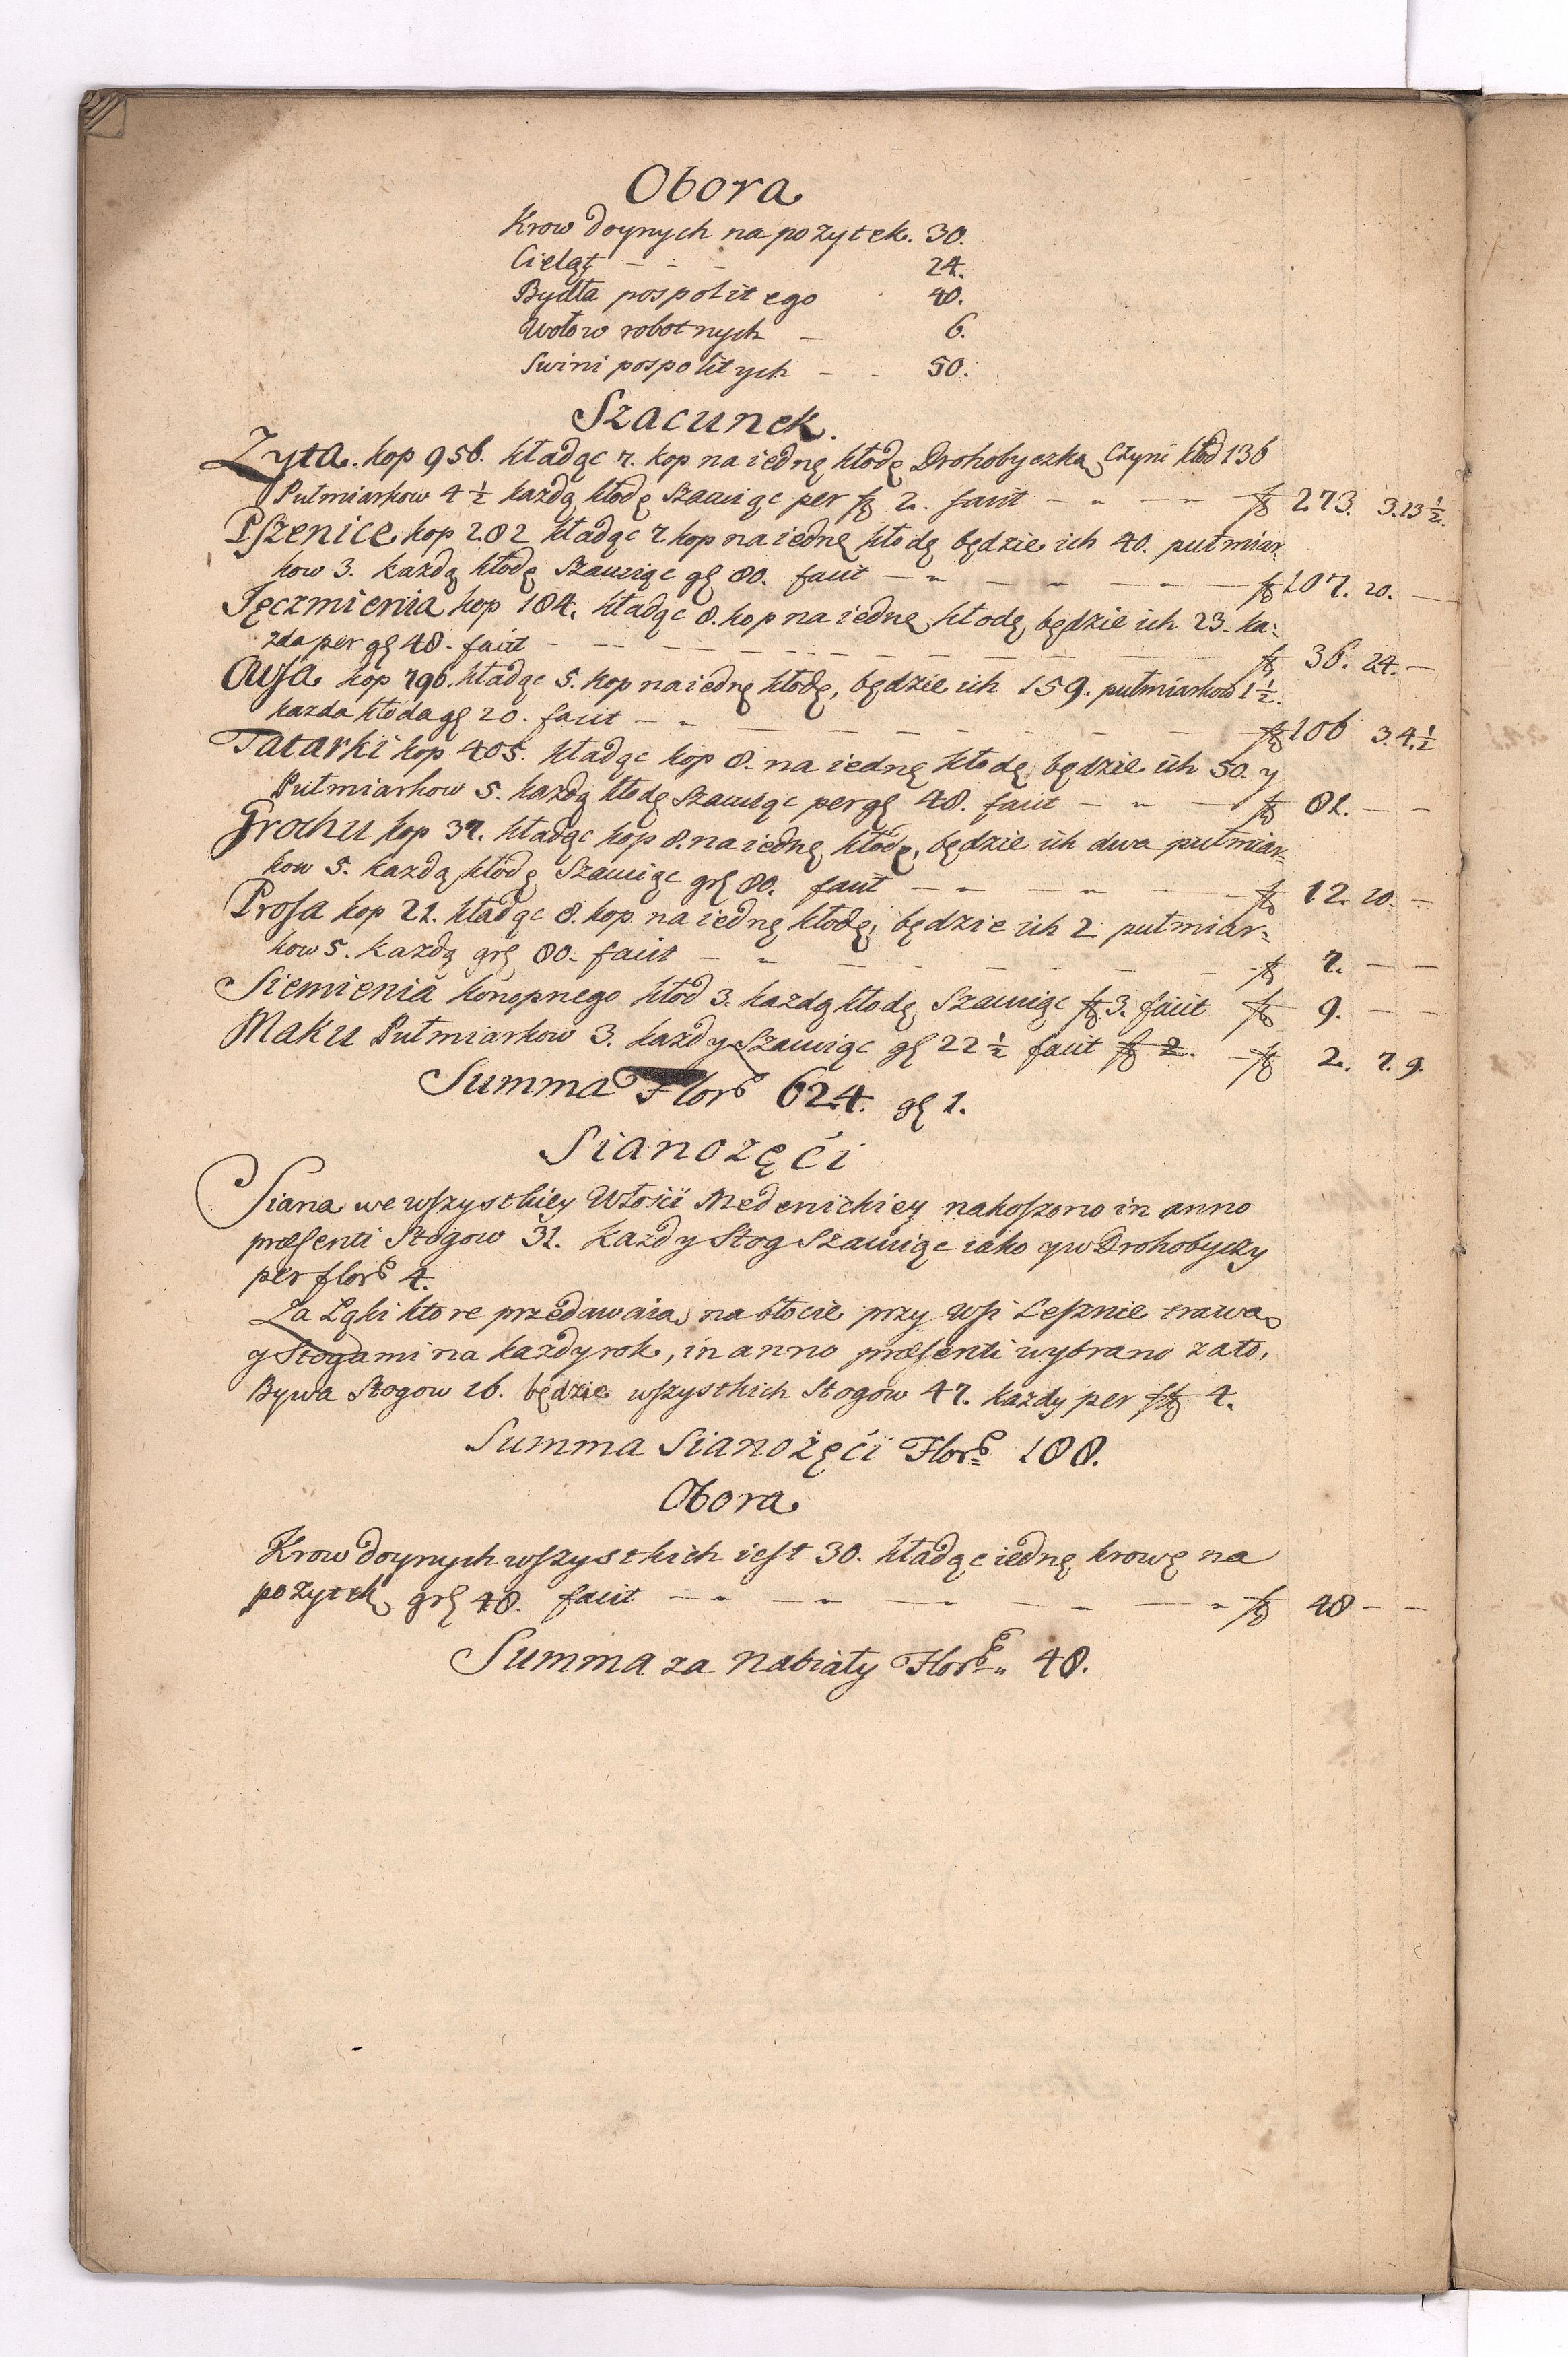 Obora
Krow doynych na pozytek. 30.
Cieląt - - - 24.
Bydła pospolitego 40.
Wołow robotnych - 6.
Swini pospolitych - - 50.
Szacunek.
Zyta. kop 956. kładąc 7. kop na iednę kłodę Drohobyczką, Czyni kłod 136
Pułmiarkow 4 1/2 kazdą kłodę szacuiąc per fl 2. facit - - - - fl 273. 3. 13 1/2.
Pszenice kop 282 kładąc 7 kop na iednę kłodę będzie ich 40. pułmiar=
kow 3. kazdą kłodę szacuiąc gł 80. facit - - - - - - - fl 107. 20. -
Jęczmienia kop 184. kładąc 8. kop na iednę kłodę, będzie ich 23. ka=
zda per gł 48. facit - - - - - - - - fl 36. 24. -
Owsa kop 796. kładąc 5. kop na iednę kłodę, będzie ich 159. pułmiarkow 1 1/2.
kazda kłoda gł 20. facit - - - - - - - - fl 106 3. 4. 1/2
Tatarki kop 405. kładąc kop 8. na iednę kłodę będzie ich 50. y
Pułmiarkow 5. kazdą kłodę szacuiąc per gł 48. facit - - - fl 81. - -
Grochu kop 37. kładąc kop 8. na iednę kłodę, będzie ich dwa pułmiar=
kow 5. kazdą kłodę szacuiąc grł 80. facit - - - - - - fl 12. 20. -
Prosa kop 21. kładąc 8. kop na iednę kłodę, będzie ich 2 pułmiar=
kow 5. kazdą grł 80. facit - - - - - - - - fl 7. - -
Siemienia konopnego kłod 3. kazdą kłodę szacuiąc fl 3. facit fl 9. - -
Maku Pułmiarkow 3. kazdy szacuiąc gł 22 1/2 facit fl 2. - fl 2. 7. 9.
Summa Flor 624. gł 1.
Sianozęći
Siana we wszystkiey Włości Medenickiey nakoszono in anno
præsenti Stogow 31. kazdy Stog szacuiąc iako y w Drohobyczy
per flor 4.
Za Łąki ktore przedawaią, na błocie przy wsi Lesznie trawą
y Stogami na kazdy rok, in anno præsenti wybrano zato,
Bywa Stogow 16. będzie wszystkich Stogow 47. kazdy per fl 4.
Summa Sianożęći Flor 188.
Obora
Krow doynych wszystkich iest 30. kładąc iednę krowę na
pozytek grł 48. facit - - - - - - - - - fl 48 - -
Summa za Nabiały Flor 48.